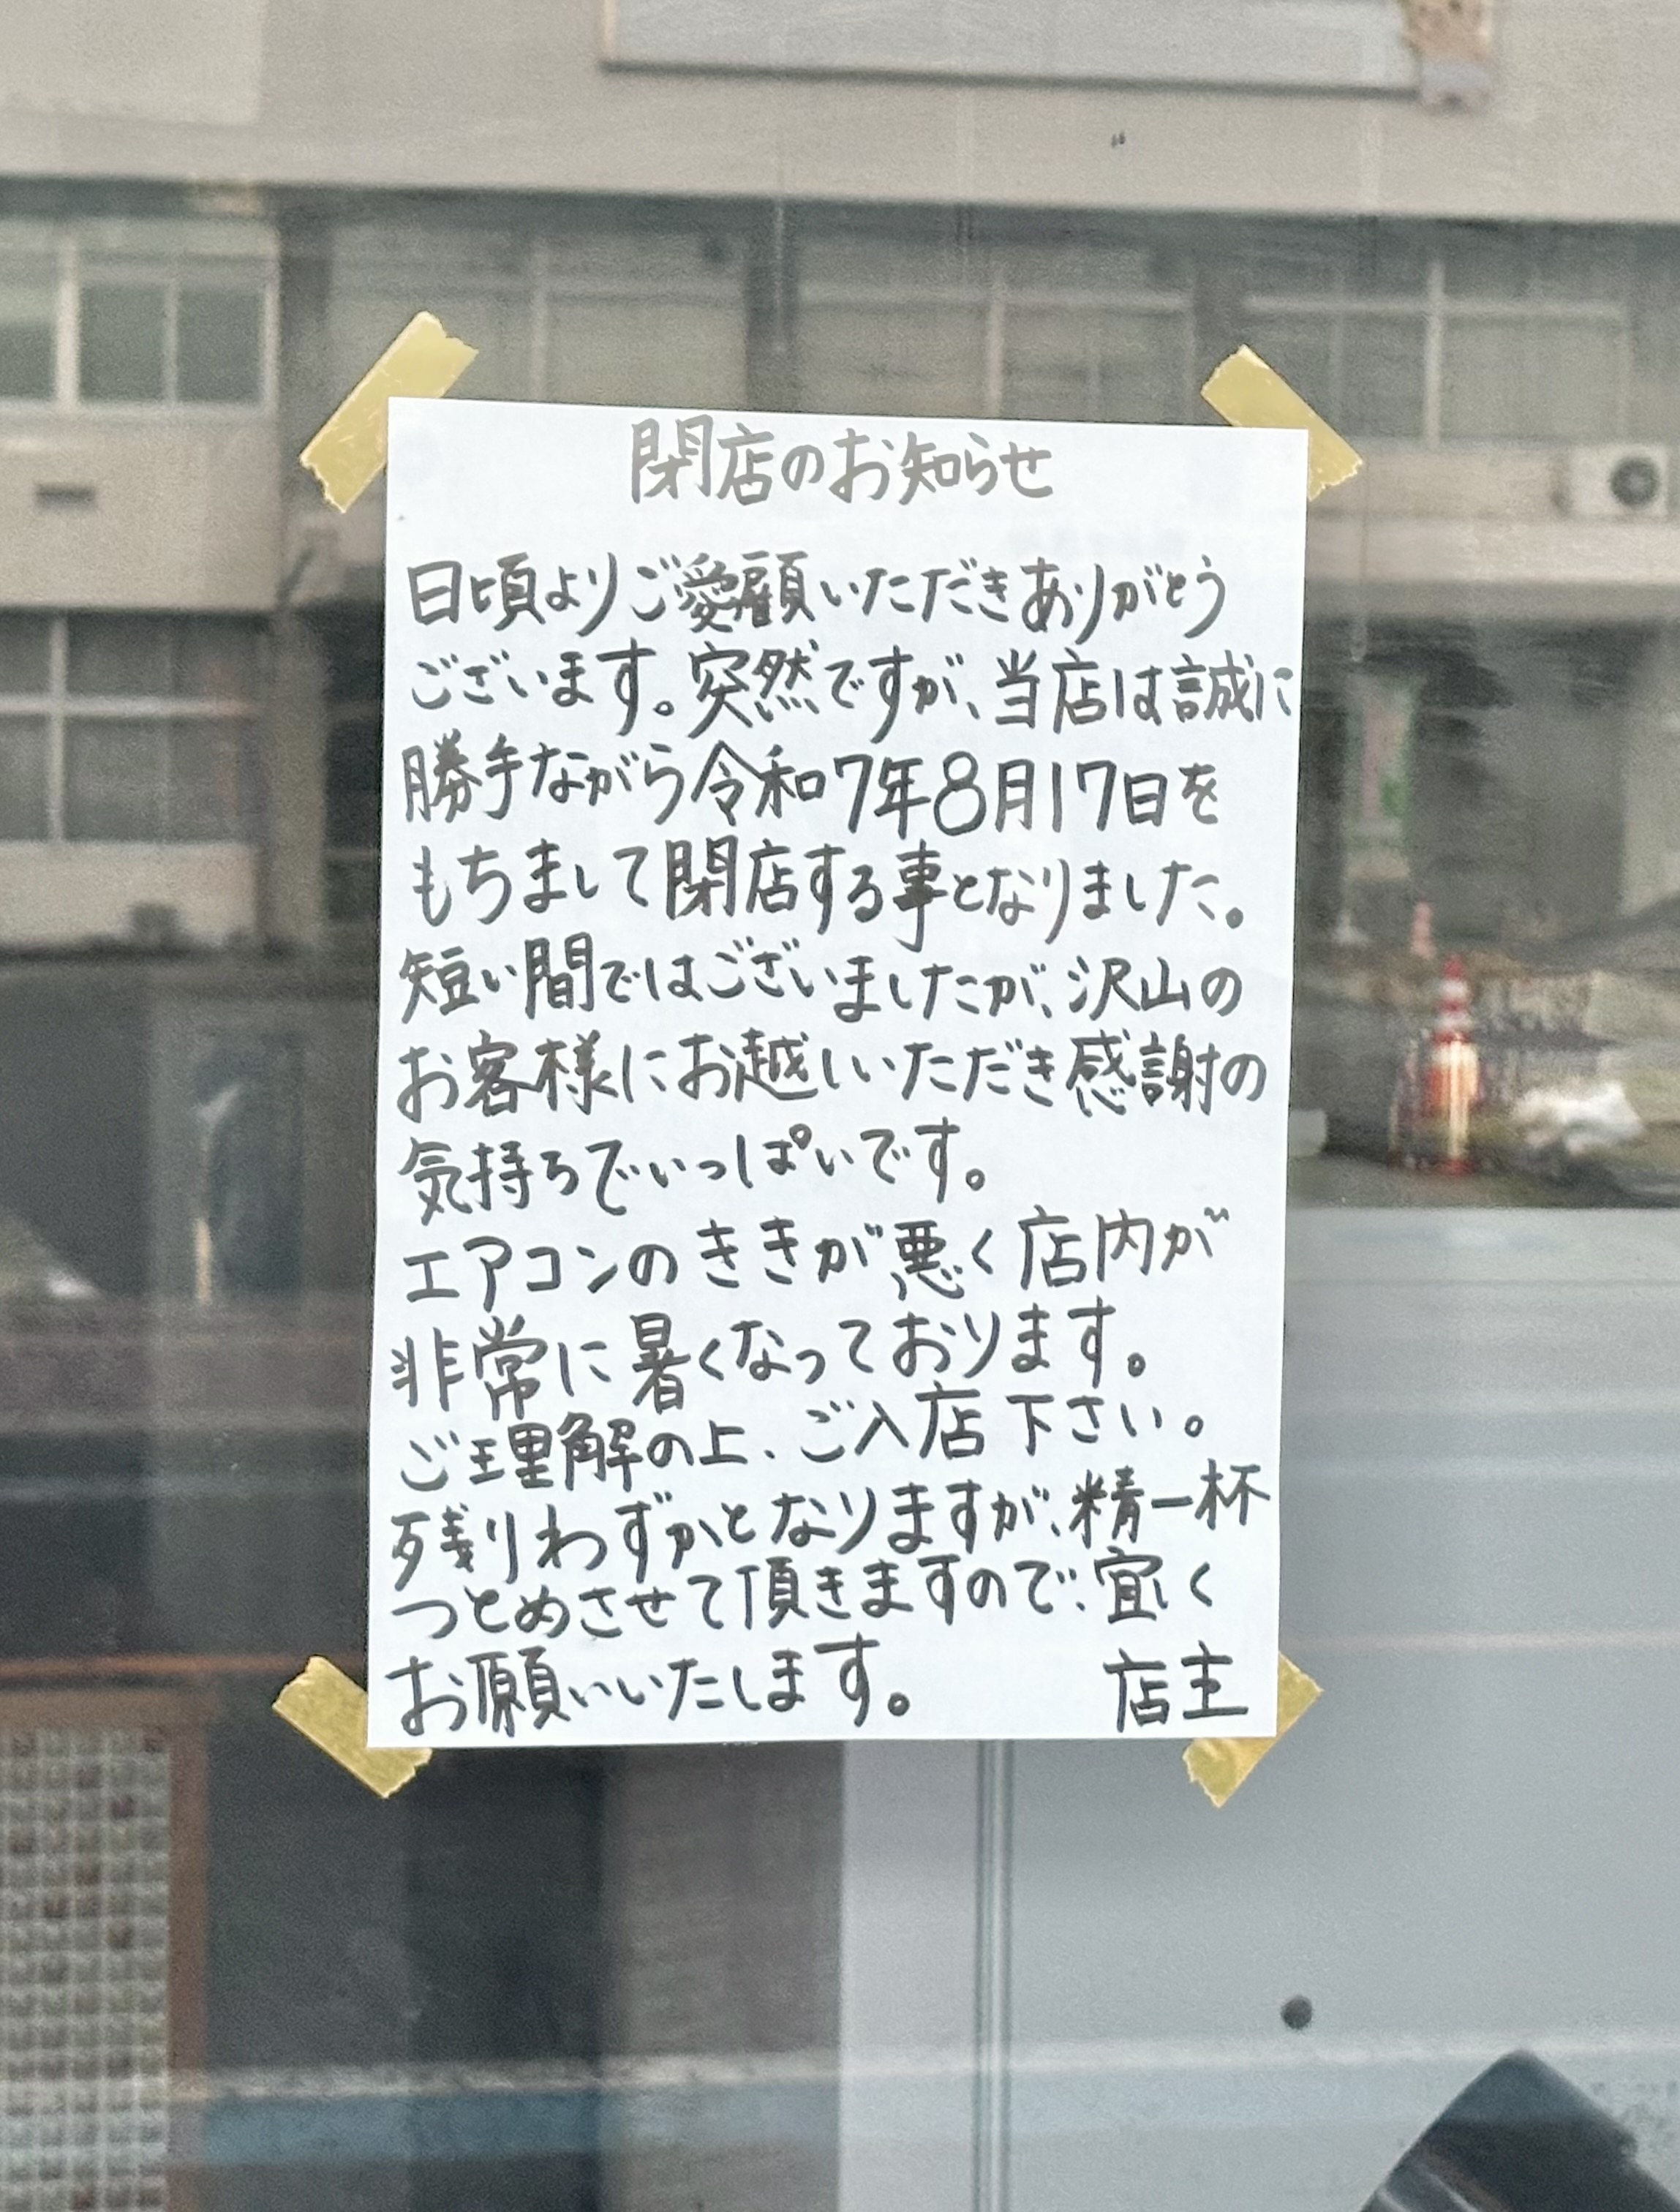 閉店のお知らせ
日頃よりご愛顧いただきありがとう
ございます。突然ですが、当店は誠に
勝手ながら令和7年8月17日を
もちまして閉店する事となりました。
短い間ではございましたが、沢山の
お客様にお越しいただき感謝の
気持ちでいっぱいです。
エアコンのききが悪く店内が
非常に暑くなっております。
ご理解の上、ご入店下さい。
残りわずかとなりますが、精一杯
つとめさせて頂きますので、宜しく
お願いいたします。 店主